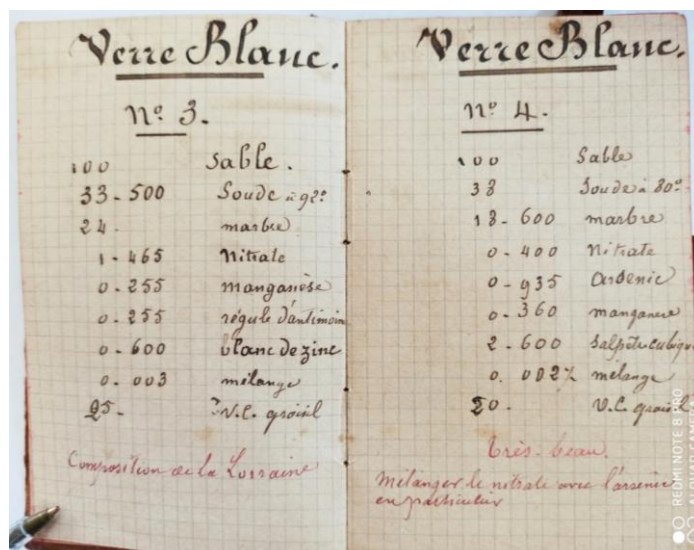 Verre Blanc.
Nº 3.
100 Sable.
33-500 Soude à 92º
24. marbre
1-465 Nitrate
0-255 manganèse
0-255 régule d'antimoin
0-600 blanc de zinc
0.003 mélange
25. V.C. groisil
Composition de la Lorraine
Verre Blanc.
Nº 4.
100 Sable
38 Soude à 80º
18-600 marbre
0-400 Nitrate
0-935 Arsenic
0.360 manganese
2-600 Salpêtre cubique
0.002½ mélange
20. V.C. groisil
très-beau.
Mélanger le nitrate avec l'arsenic
en particulier
REDMI NOTE 8 PRO